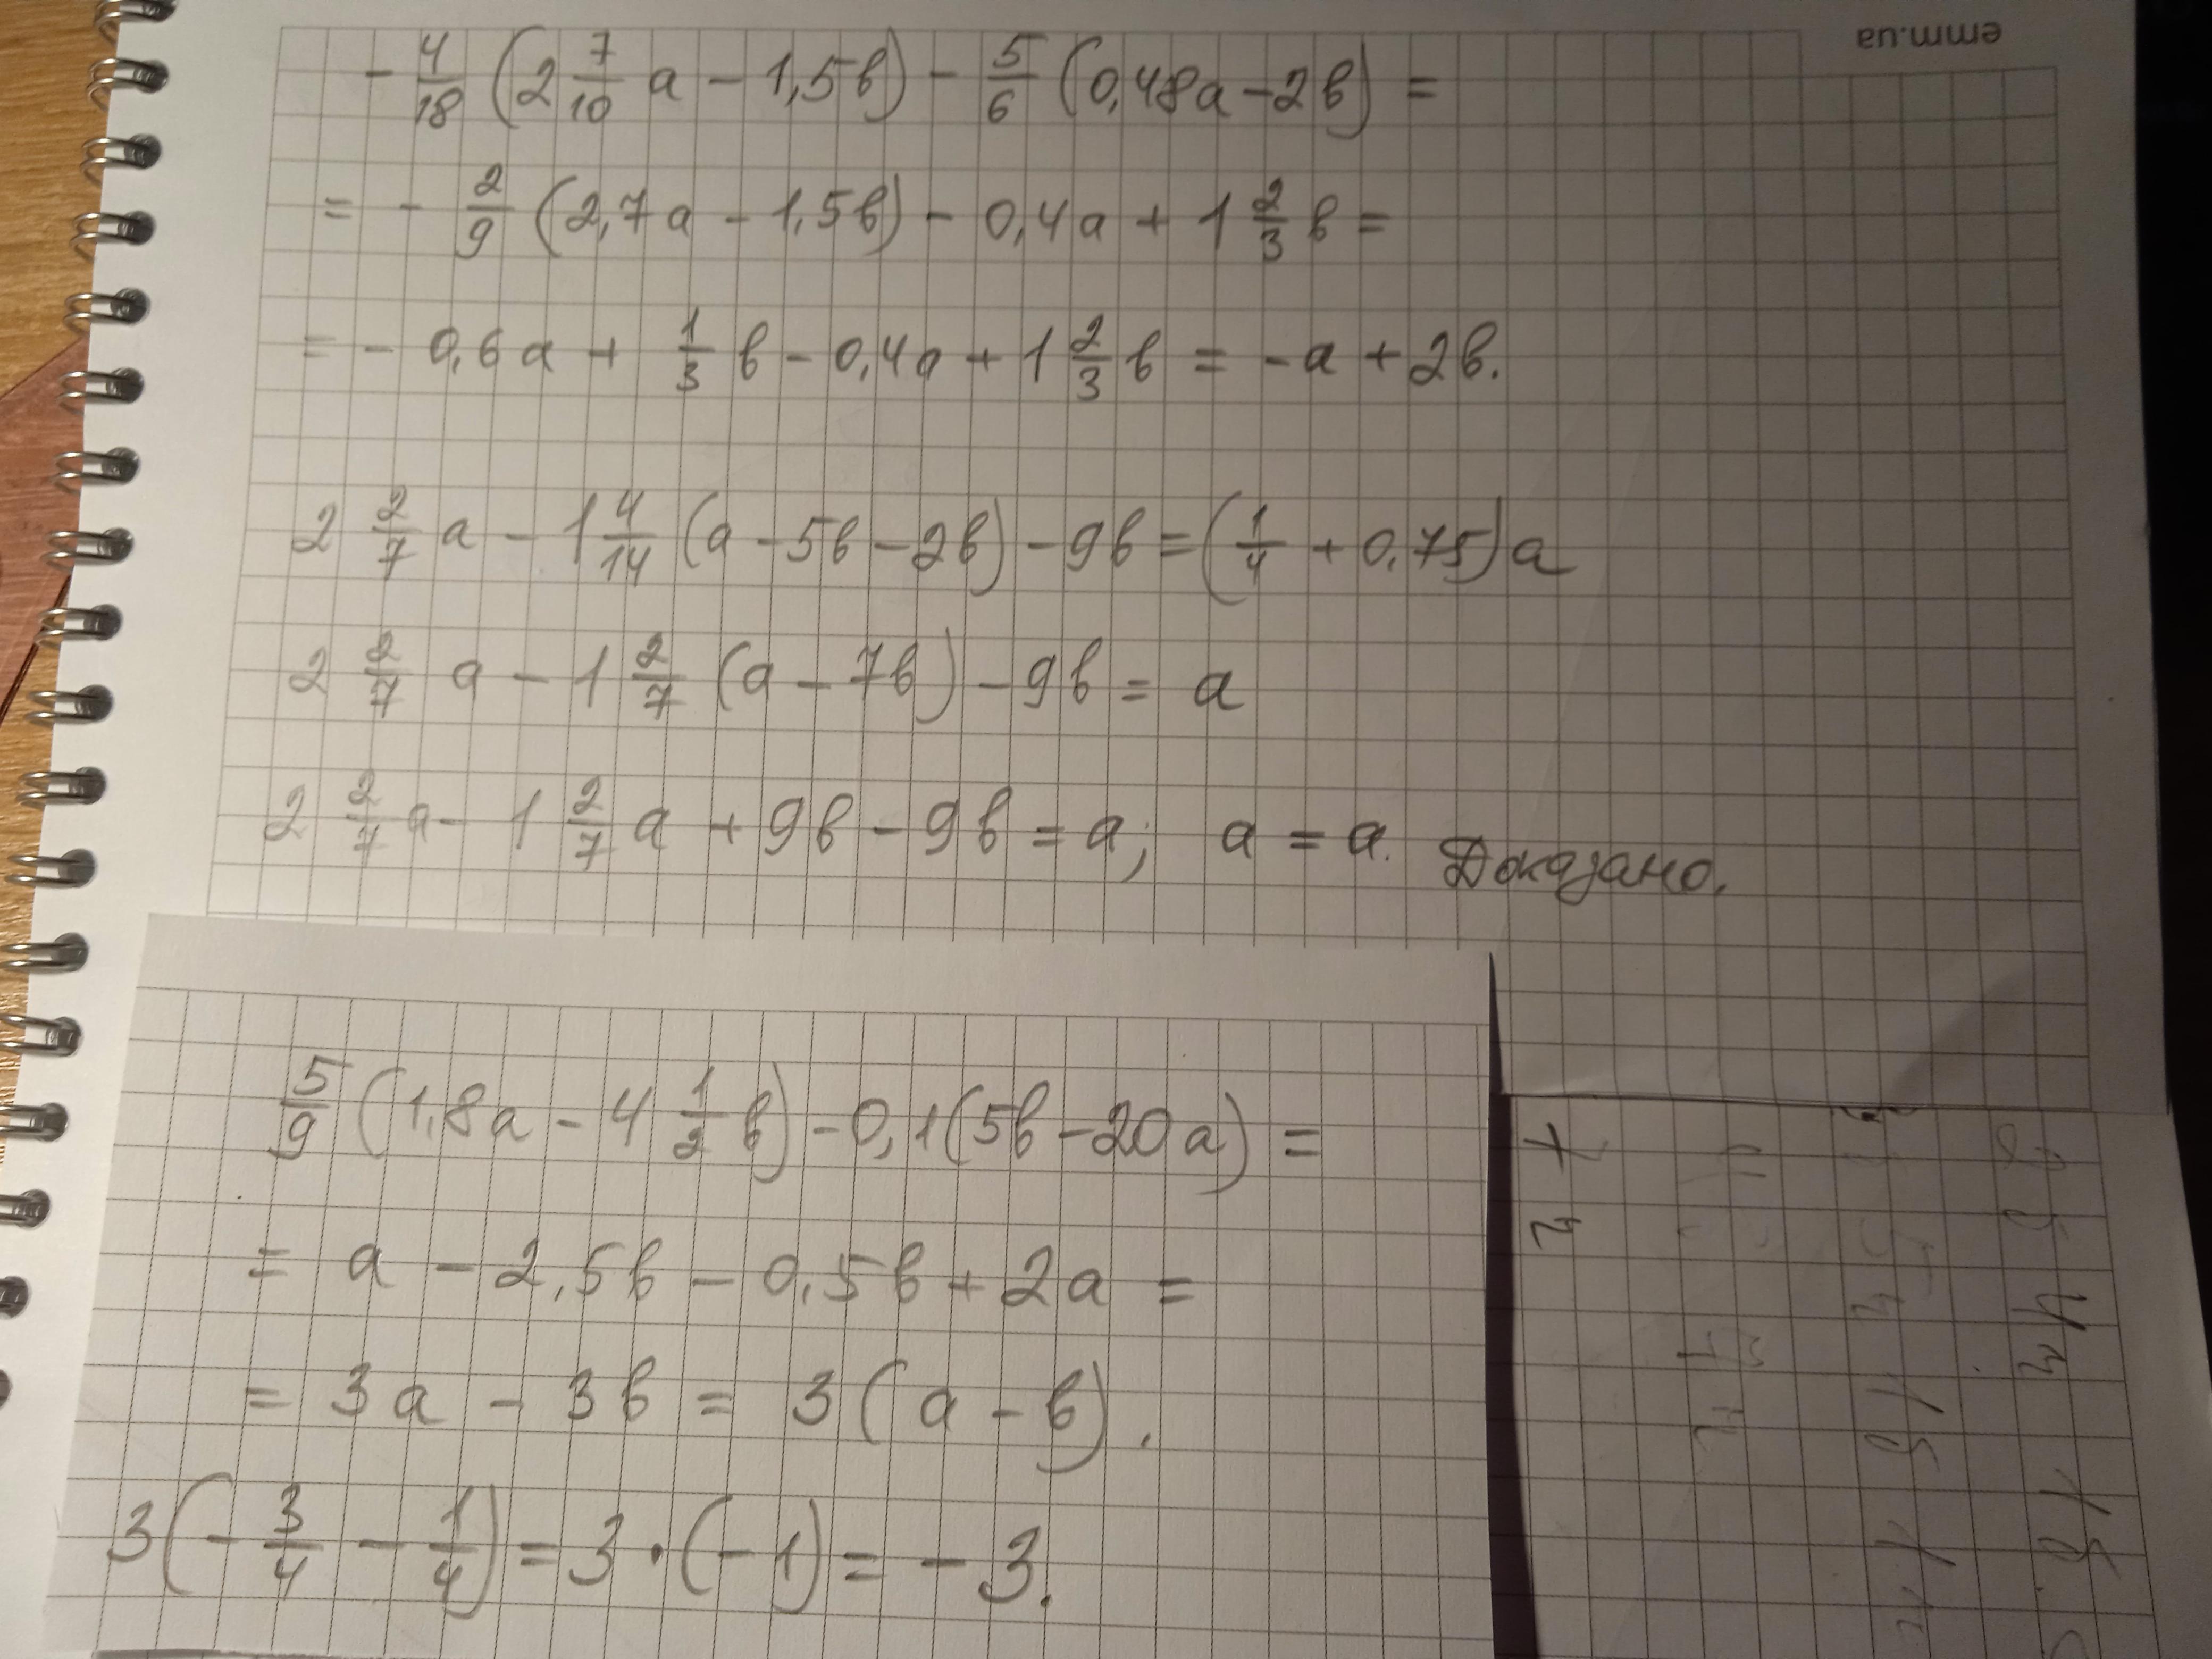 emm.ua
- 4/18 (2 7/10 a - 1,5в) - 5/6 (0,48а - 2в) =
= - 2/9 (2,7а - 1,5в) - 0,4а + 1 2/3 в =
= - 0,6а + 1/3 в - 0,4а + 1 2/3 в = -а + 2в.
2 2/7 а - 1 4/14 (а - 5в - 2в) - 9в = (1/4 + 0,75)а
2 2/7 а - 1 2/7 (а - 7в) - 9в = а
2 2/7 а - 1 2/7 а + 9в - 9в = а; а = а. Доказано.
5/9 (1,8а - 4 1/2 в) - 0,1(5в - 20а) =
= а - 2,5в - 0,5в + 2а =
= 3а - 3в = 3(а - в).
3(- 3/4 - 1/4) = 3 · (-1) = - 3.